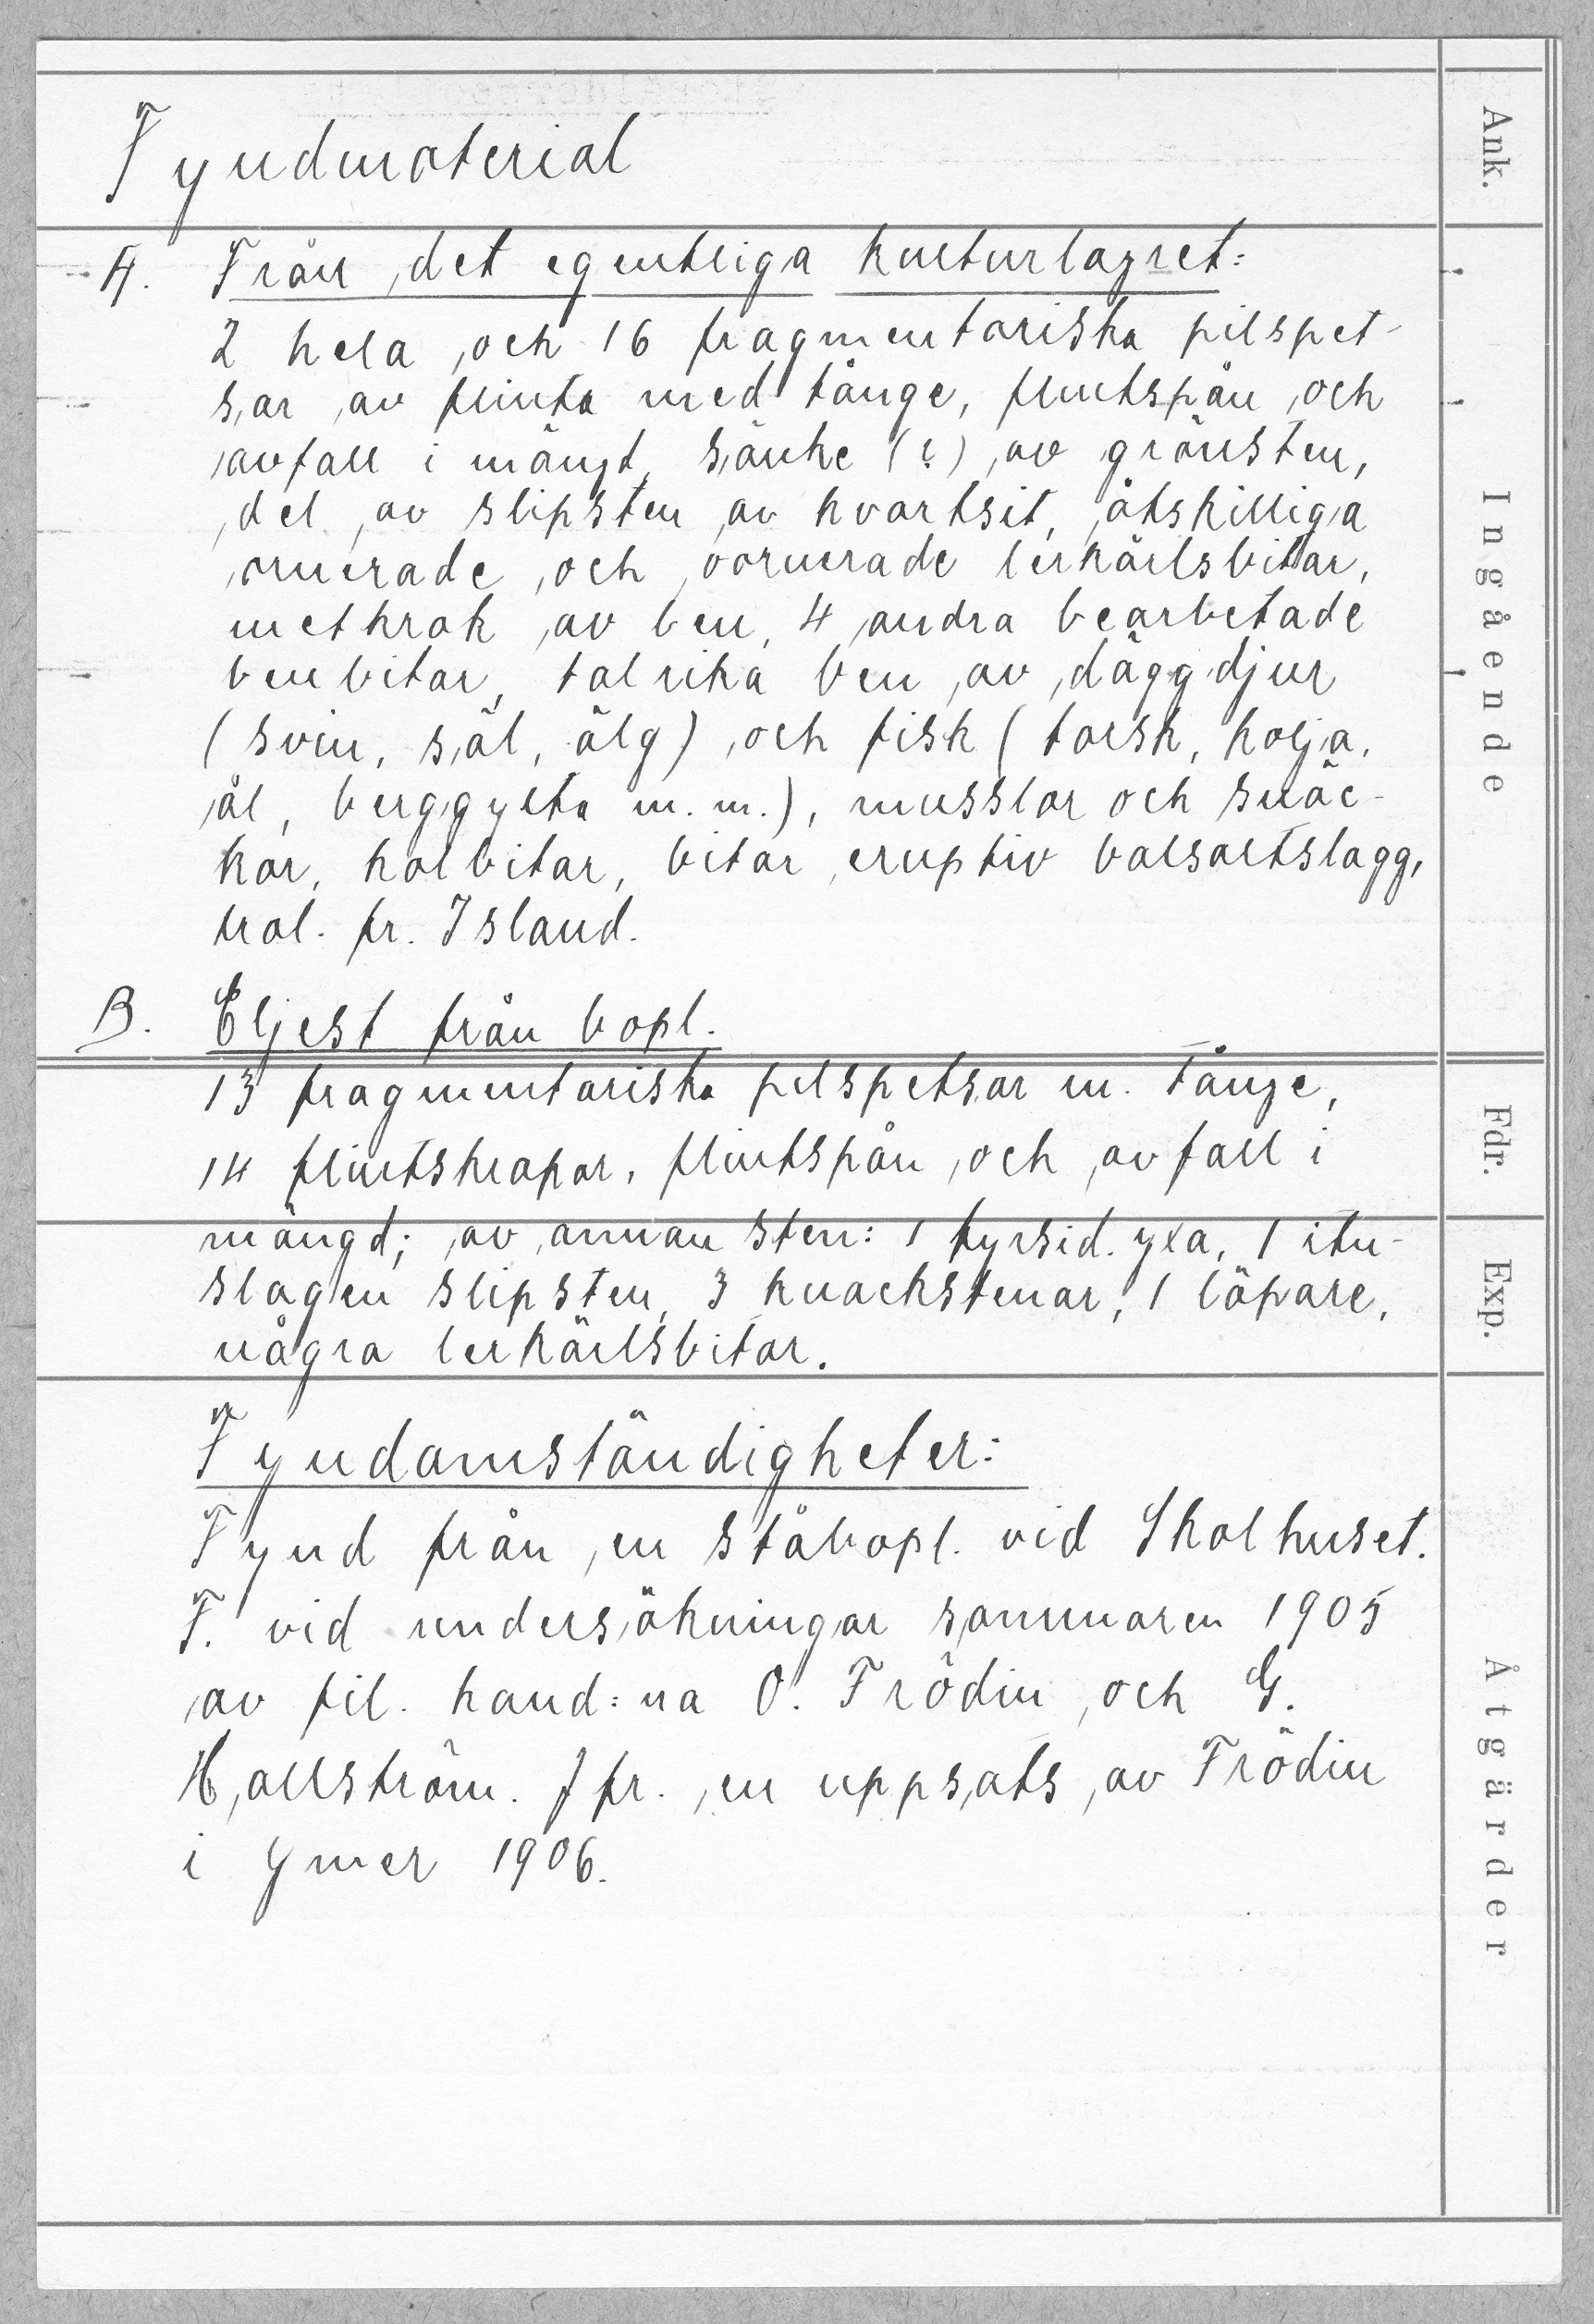 Fyndmaterial
Ank.
A. Från det egentliga kulturlagret:
2 hela och 16 fragmentariska pilspet-
sar av flinta med tånge, flintspån och
avfall i mängd, sänke (?) av grönsten,
del av slipsten av kvartsit, åtskilliga
ornerade och oornerade lerkärlsbitar,
metkrok av ben, 4 andra bearbetade
benbitar, talrika ben av däggdjur
(svin, säl, älg) och fisk (torsk, kolja,
ål, berggylta m. m.), musslor och snäc-
kor, kolbitar, bitar eruptiv balsaltslagg,
trol. fr. Island.
Ingående
B. Eljest från bopl.
13 fragmentariska pilspetsar m. tånge,
14 flintskrapor, flintspån och avfall i
Fdr.
mängd; av annan sten: 1 fyrsid. yxa, 1 itu-
slagen slipsten, 3 knackstenar, 1 löpare,
några lerkärlsbitar.
Exp.
Fyndomständigheter:
Fynd från en ståbopl. vid Skolhuset.
F. vid undersökningar sommaren 1905
av fil. kand:na O. Frödin och G.
Hallström. Jfr. en uppsats av Frödin
i Ymer 1906.
Åtgärder